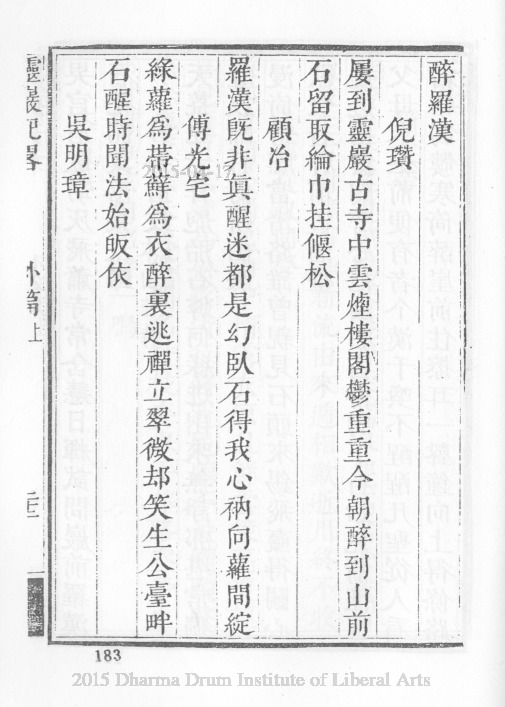 醉羅漢
倪瓚
屢到靈巖古寺中雲煙樓閣鬱重重今朝醉到山前
石留取綸巾挂偃松
顧冶
羅漢旣非眞醒迷都是幻臥石得我心衲向蘿間綻
傅光宅
綠蘿爲帶蘚爲衣醉裏逃禪立翠微却笑生公臺畔
石醒時聞法始皈依
吳明璋
靈巖記畧
外篇上
183
2015 Dharma Drum Institute of Liberal Arts